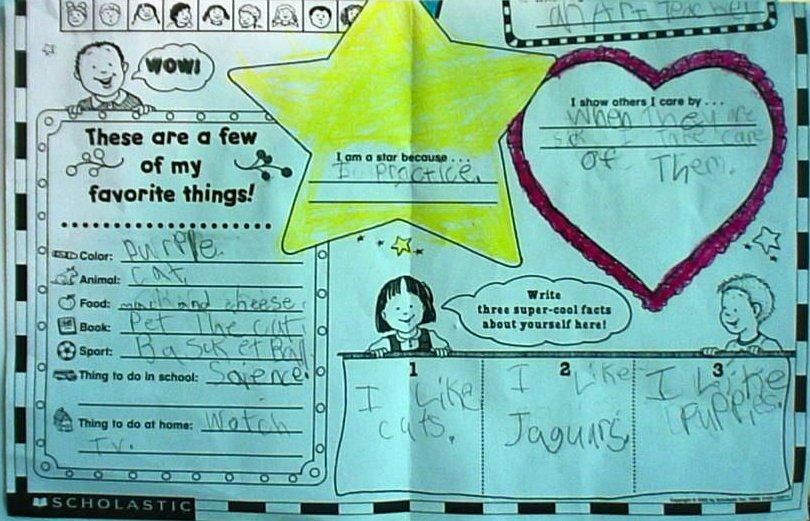 an Art Teacher
WOW!
I show others I care by . . .
when They are
sick I Take care
of Them.
I am a star because . . .
I practice.
These are a few
of my
favorite things!
Color: purple
Animal: cat
Food: mack and cheese
Book: Pet The cat
Sport: Basck et Ball
Thing to do in school: Science
Thing to do at home: Watch
TV.
Write
three super-cool facts
about yourself here!
1 2 3
I Like
cats.
I Like
Jaguars.
I Like
puppies.
SCHOLASTIC